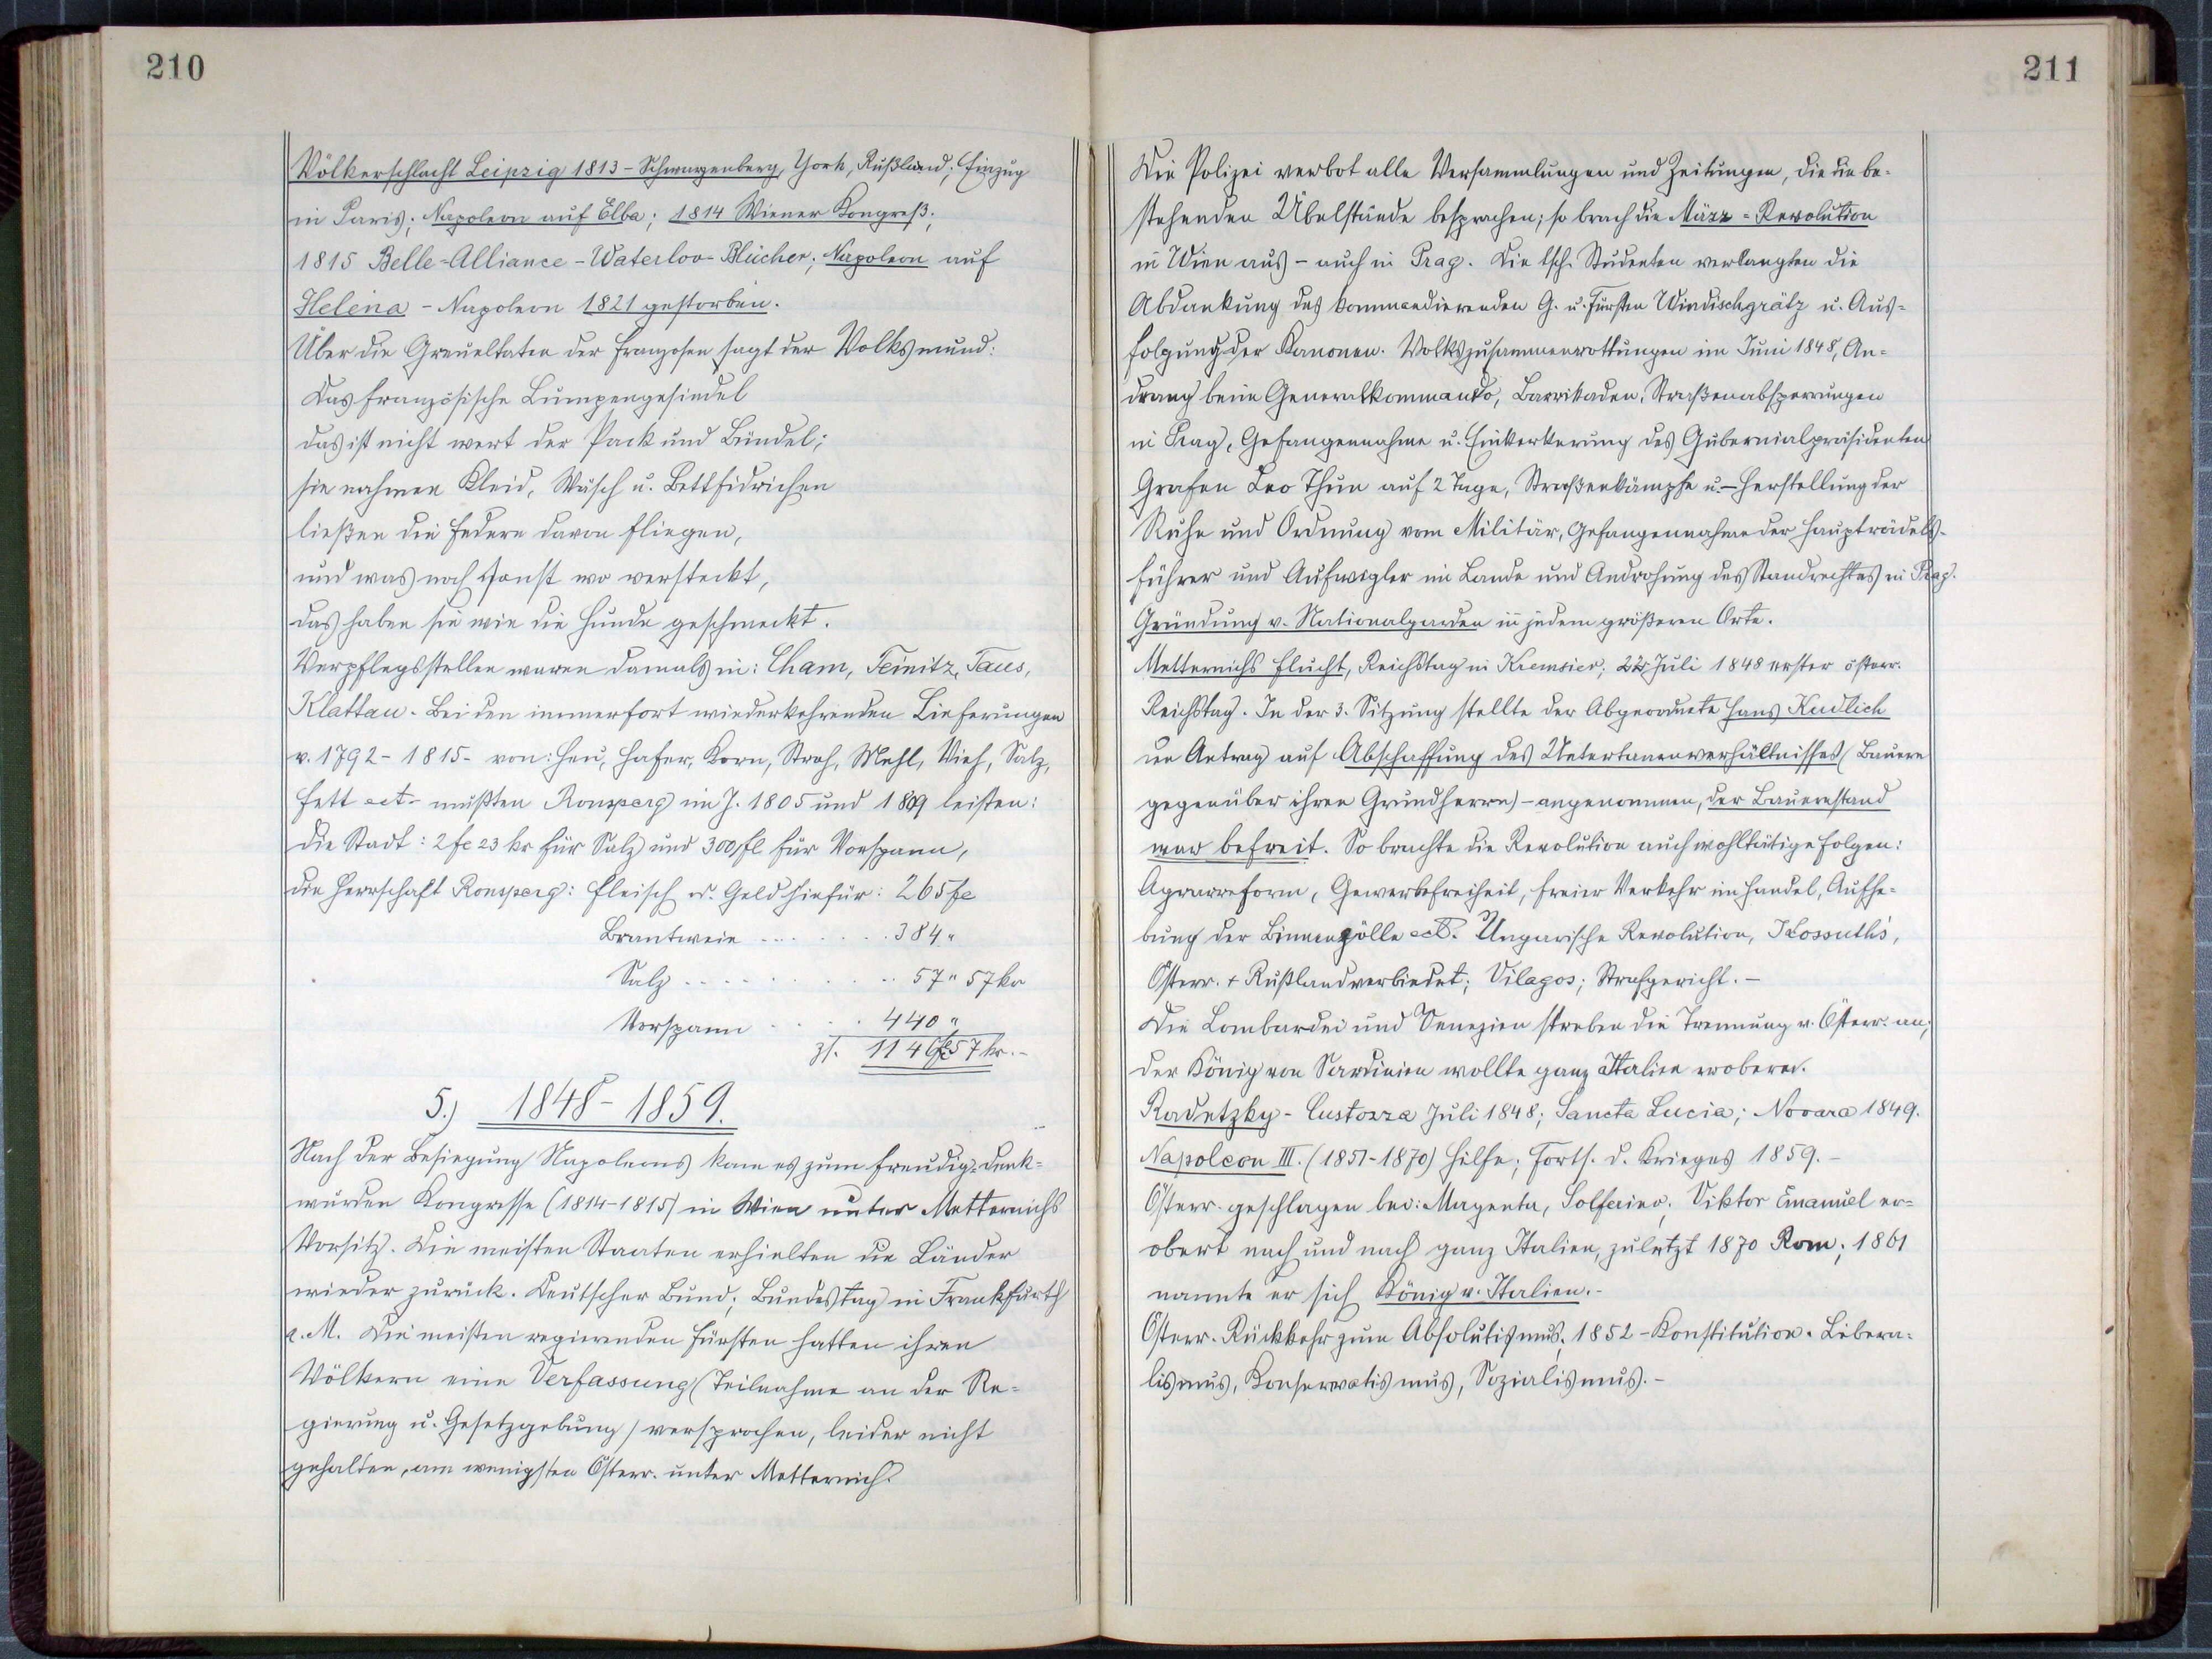 210
Völkerschlacht Leipzig 1813 - Schwarzenberg, York, Rußland; Einzug
in Paris; Napoleon auf Elba; 1814 Wiener Kongreß;
1815 Belle-Alliance - Waterloo - Blücher; Napoleon auf
Helena - Napoleon 1821 gestorben.
Über die Greueltaten der Franzosen sagt der Volksmund:
Das französische Lumpengesindel
das ist nicht wert der Pack und Bündel;
sie nahmen Kleid, Wäsch u. Bettfidrichen
ließen die Federn davon fliegen,
und was noch sonst wo versteckt,
das haben sie wie die Hunde geschmeckt.
Verpflegsstellen waren damals in: Cham, Teinitz, Taus,
Klattau. Bei den immerfort wiederkehrenden Lieferungen
v. 1792 - 1815 - von: Heu, Hafer, Korn, Stroh, Mehl, Vieh, Salz,
Fett ect. mußten Ronsperg im J. 1805 und 1809 leisten:
die Stadt: 2 fl 23 kr für Salz und 300 fl für Vorspann,
die Herrschaft Ronsperg: Fleisch od. Geld hiefür: 265 fl
Brantwein ....... 384 "
Salz .......... 57 " 57 kr
Vorspann ..... 440 "
zs. 1146 fl 57 kr. -
5.) 1848 - 1859.
Nach der Besiegung Napoleons kam es zum freudig-denk-
würden Kongresse (1814-1815) in Wien unter Metternichs
Vorsitz. Die meisten Staaten erhielten die Länder
wieder zurück. Deutscher Bund; Bundestag in Frankfurth
a. M. Die meisten regierenden Fürsten hatten ihren
Völkern eine Verfassung (Teilnahme an der Re-
gierung u. Gesetzgebung) versprochen, leider nicht
gehalten, am wenigsten Österr. unter Metternich.
211
Die Polizei verbot alle Versammlungen und Zeitungen, die die be-
stehenden Übelstände besprachen; so brach die März-Revolution
in Wien aus - auch in Prag. Die tsch. Studenten verlangten die
Abdankung des kommandierenden G. u. Fürsten Windischgrätz u. Aus-
folgung der Kanonen. Volkszusammenrottungen im Juni 1848, An-
drang beim Generalkommando, Barrikaden, Straßenabsperrungen
in Prag, Gefangennahme u. Einkerkerung des Gubernialpräsidenten
Grafen Leo Thun auf 2 Tage, Straßenkämpfe u. - Herstellung der
Ruhe und Ordnung vom Militär, Gefangennahme der Haupträdels-
führer und Aufwigler im Lande und Androhung des Standrechtes in Prag.
Gründung v. Nationalgarden in jedem größeren Orte.
Metternichs Flucht, Reichstag in Kremsier; 22. Juli 1848 erster österr.
Reichstag. In der 3. Sitzung stellte der Abgeordnete Hans Kudlich
den Antrag auf Abschaffung des Untertanenverhältnisses (Bauern
gegenüber ihren Grundherrn) - angenommen, der Bauernstand
war befreit. So brachte die Revolution auch wohltätige Folgen:
Agrarreform, Gewerbefreiheit, freier Verkehr im Handel, Aufhe-
bung der Binnenzölle ect. Ungarische Revolution, Kossuth's,
Österr. + Rußland verbündet; Vilagos; Strafgericht. -
Die Lombardei und Venezien streben die Trennung v. Österr. an;
der König von Sardinien wollte ganz Italien erobern.
Radetzky - Custozza Juli 1848; Sancta Lucia; Novara 1849.
Napoleon III. (1851-1870) Hilfe; Forts. d. Krieges 1859. -
Österr. geschlagen bei: Magenta, Solferino; Viktor Emanuel er-
obert nach und nach ganz Italien, zuletzt 1870 Rom; 1861
nannte er sich König v. Italien. -
Österr. Rückkehr zum Absolutismus, 1852 - Konstitution. Libera-
lismus, Konservatismus, Sozialismus. -